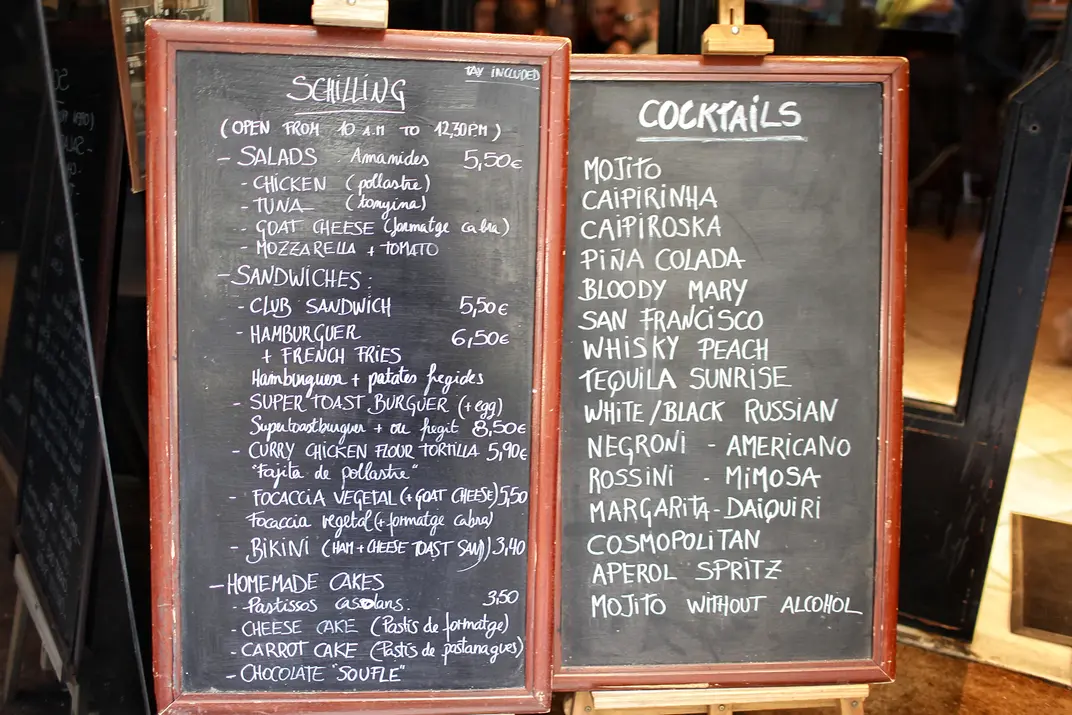 SCHILLING
TAX INCLUDED
(OPEN FROM 10 A.M TO 12,30PM)
- SALADS . Amamides 5,50€
- CHICKEN (pollastre)
- TUNA (tonyina)
- GOAT CHEESE (formatge cabra)
- MOZZARELLA + TOMATO
- SANDWICHES:
- CLUB SANDWICH 5,50€
- HAMBURGUER 6,50€
+ FRENCH FRIES
Hamburguesa + patates fregides
- SUPER TOAST BURGUER (+egg)
Supertoastburguer + ou fregit 8,50€
- CURRY CHICKEN FLOUR TORTILLA 5,90€
"Fajita de pollastre"
- FOCACCIA VEGETAL (+GOAT CHEESE) 5,50
Focaccia vegetal (+formatge cabra)
- BIKINI (HAM + CHEESE TOAST SAND) 3,40
- HOMEMADE CAKES
- Pastissos casolans. 3,50
- CHEESE CAKE (Pastís de formatge)
- CARROT CAKE (Pastís de pastanagues)
- CHOCOLATE "SOUFLE"
COCKTAILS
MOJITO
CAIPIRINHA
CAIPIROSKA
PIÑA COLADA
BLOODY MARY
SAN FRANCISCO
WHISKY PEACH
TEQUILA SUNRISE
WHITE/BLACK RUSSIAN
NEGRONI - AMERICANO
ROSSINI - MIMOSA
MARGARITA - DAIQUIRI
COSMOPOLITAN
APEROL SPRITZ
MOJITO WITHOUT ALCOHOL